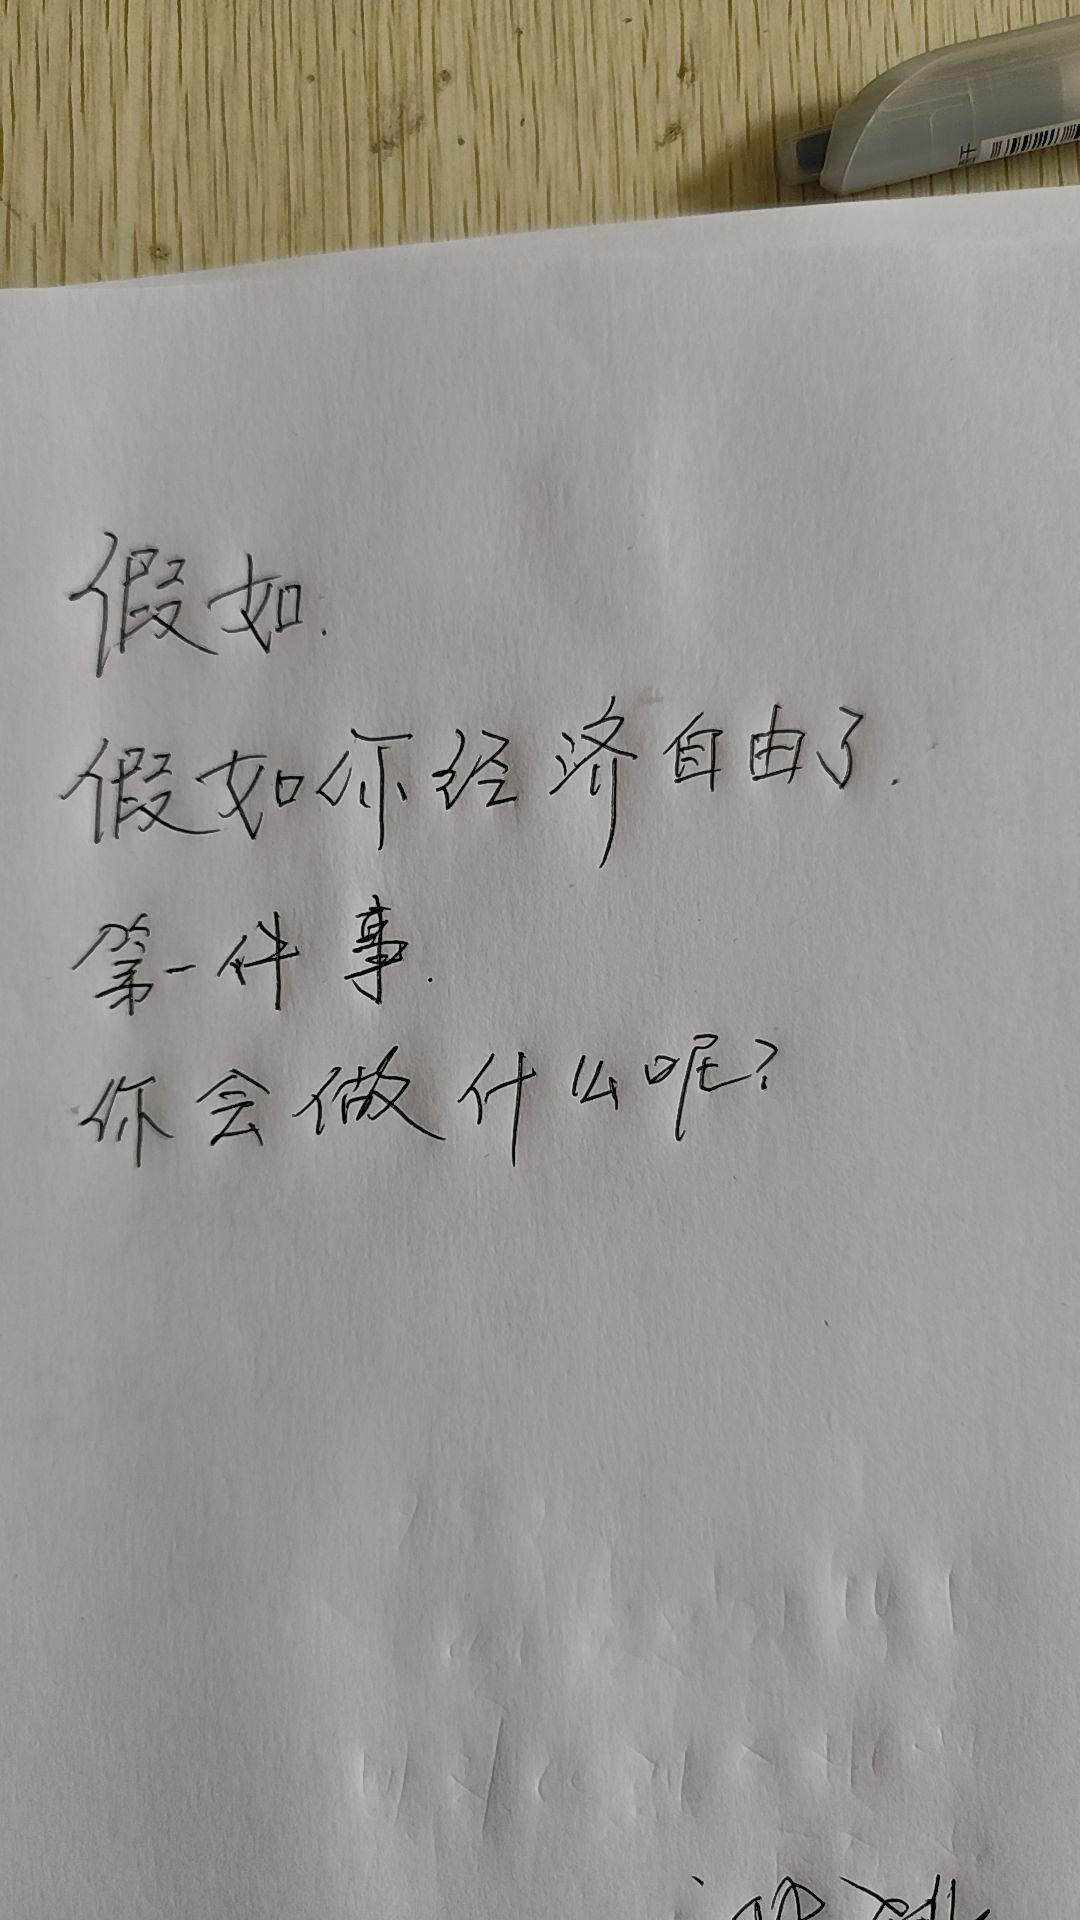 假如.
假如你经济自由了.
第一件事.
你会做什么呢?